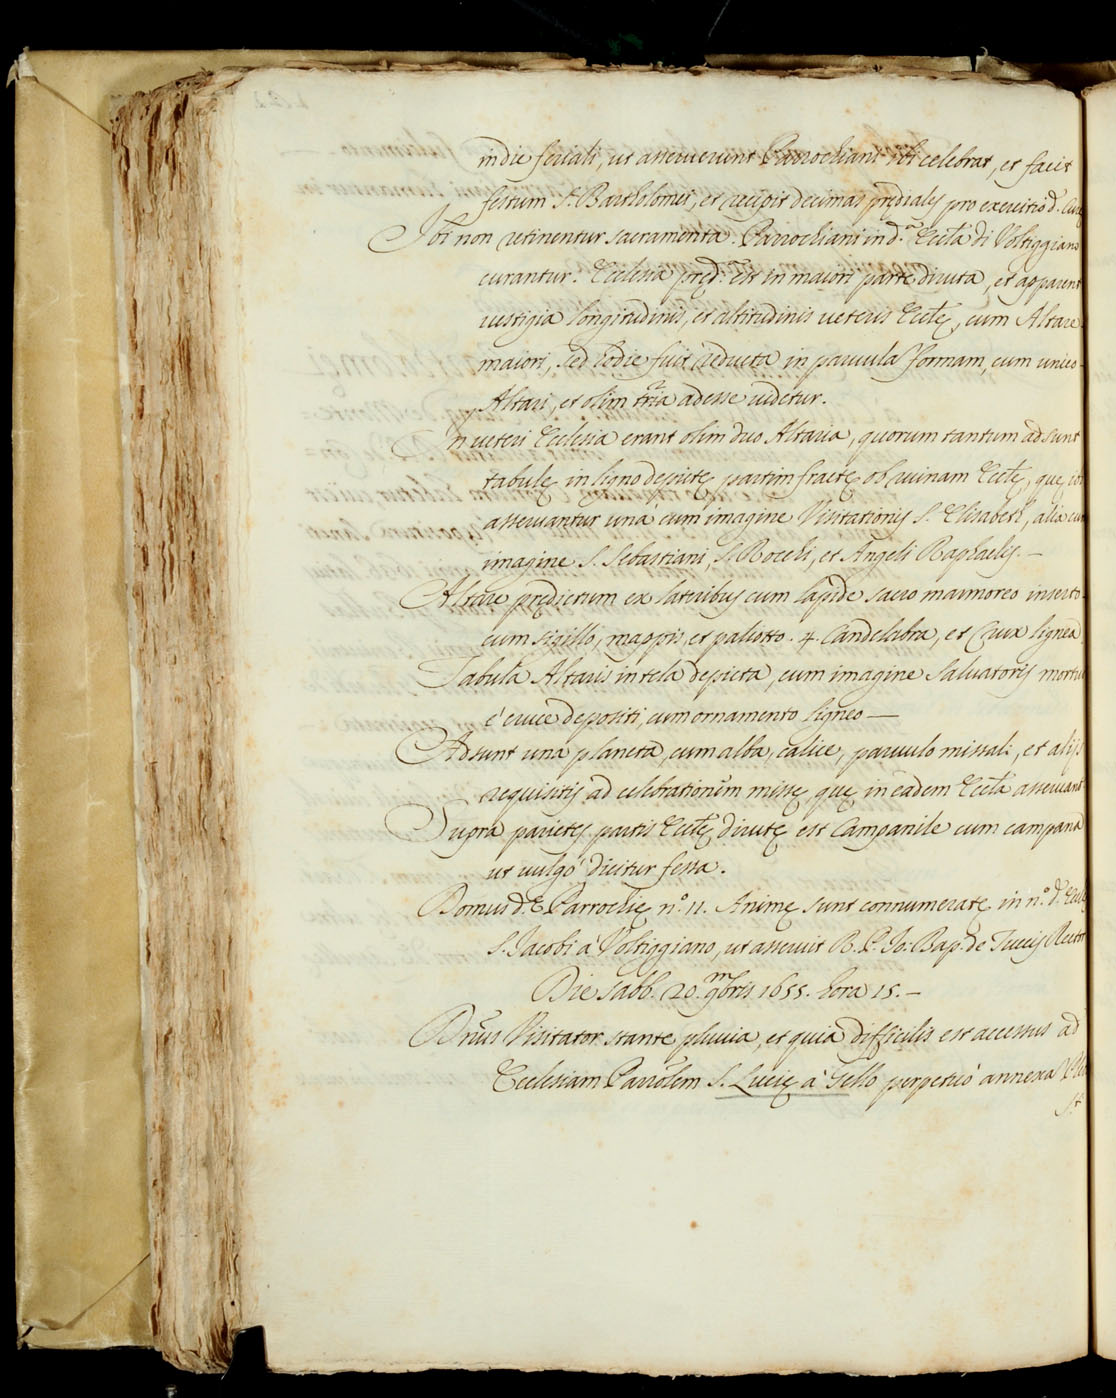 in die feriali, ut asseruerunt Parrochiani ibi celebrat, et facit
festum S. Bartholomei, et recipit decimas prędiales pro exercitio d.
Ibi non retinentur sacramenta. Parrochiani in d.ª Eccl̃a di Voltiggiano
curantur. Ecclesia pręd.ª est in maiori parte diruta, et apparent
vestigia longitudinis, et altitudinis veteris Eccl̃ę, cum Altare
maiori, sed hodie fuit reducta in parvula forman, cum unico
Altari, et olim tria adesse videtur.
In veteri Ecclesia erant olim duo Altaria, quorum tantum adsunt
tabulę in ligno depictę partim fractę ob ruinam Eccl̃ę, quę ibi
asservantur unà cum imagine Visitationis S. Elisabeth, alia cum
imagine S. Sebastiani, S. Rocchi, et Angeli Raphaelis. —
Altare prędictum ex lateribus cum lapide sacro marmoreo inserto
cum sigillo, mappis, et paliotto. 4. Candelabra, et Crux lignea
Tabula Altaris in tela depicta, cum imagine Salvatoris mortui
è cruce depositi, cum ornamento ligneo —
Adsunt una planeta, cum alba, calice, parvulo missali, et alijs
requisitis ad celebrationem missę, quę in eadem Eccl̃a asservant
Supra parietes partis Eccl̃ę dirutę est Campanile cum campana
ut vulgò dicitur fessa.
Domus d.ę Parrochię n.º 11. Animę sunt connumeratę in n.º d.ę
S. Jacobi à Voltiggiano, ut asseruit R. P. Jo: Bap. de Tuccis Rector
Die sabb. 20. 9mbris 1655. hora 15. —
Dñus Visitator stante pluvia, et quia difficilis est accessus ad
Ecclesiam Parrõlem S. Lucię à Gello perpetuò annexa